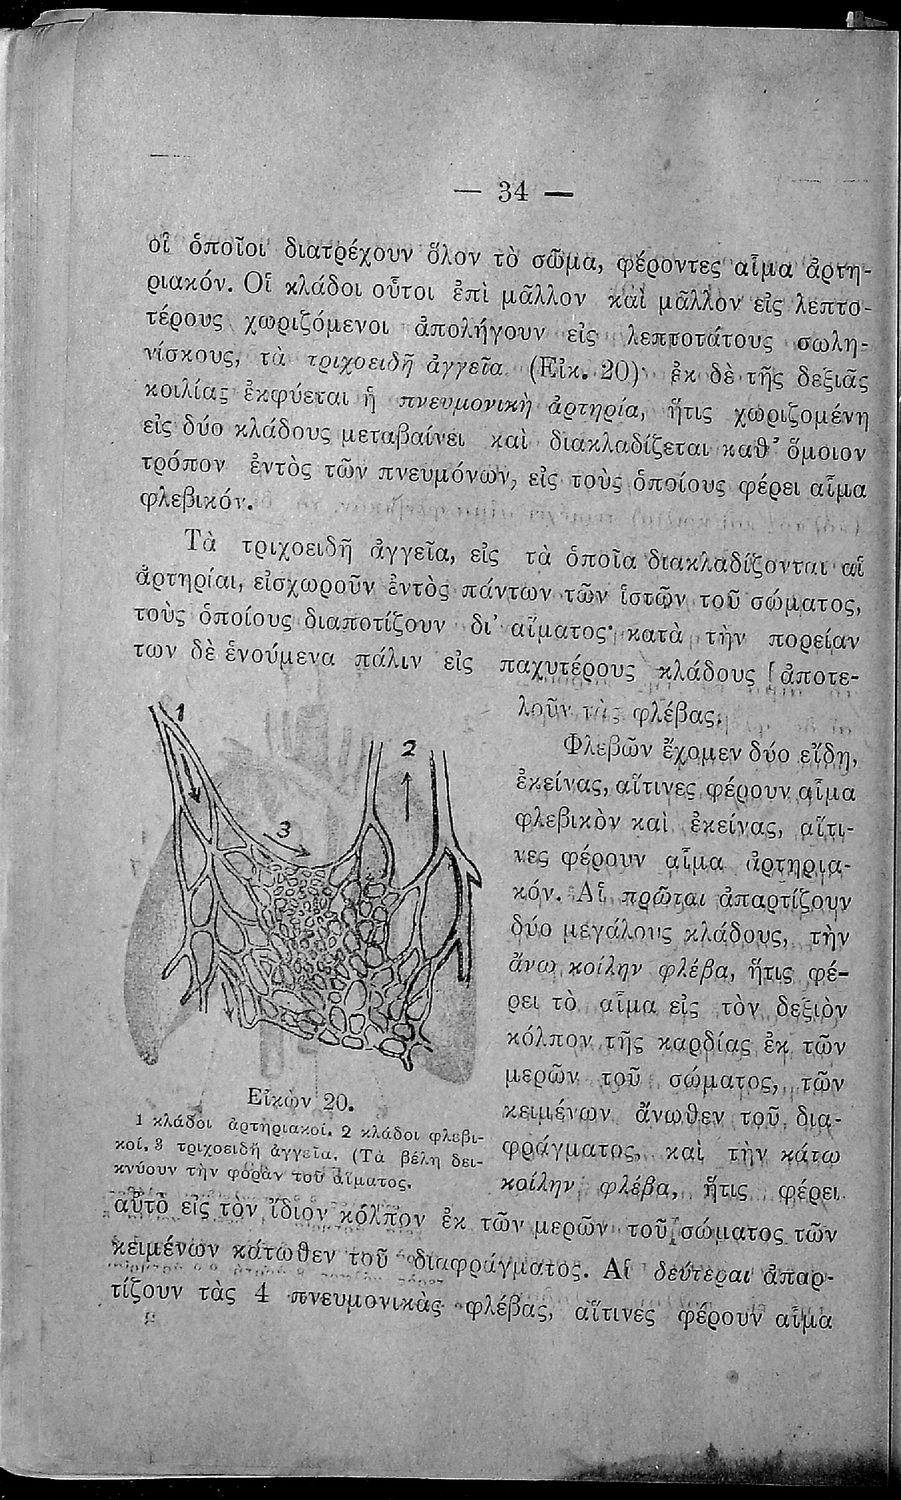 — 34 —
οἳ ὁποῖοι διατρέχουν ὅλον τὸ σῶμα, φέροντες αἷμα ἀρτη-
ριακόν. Οἱ κλάδοι οὗτοι ἐπὶ μᾶλλον καὶ μᾶλλον εἰς λεπτο-
τέρους χωριζόμενοι ἀπολήγουν εἰς λεπτοτάτους σωλη-
νίσκους, τὰ τριχοειδῆ ἀγγεῖα (Εἰκ. 20) ἐκ δὲ τῆς δεξιᾶς
κοιλίας ἐκφύεται ἡ πνευμονικὴ ἀρτηρία, ἥτις χωριζομένη
εἰς δύο κλάδους μεταβαίνει καὶ διακλαδίζεται καθ' ὅμοιον
τρόπον ἐντὸς τῶν πνευμόνων, εἰς τοὺς ὁποίους φέρει αἷμα
φλεβικόν.
Τὰ τριχοειδῆ ἀγγεῖα, εἰς τὰ ὁποῖα διακλαδίζονται αἱ
ἀρτηρίαι, εἰσχωροῦν ἐντὸς πάντων τῶν ἱστῶν τοῦ σώματος,
τοὺς ὁποίους διαποτίζουν δι' αἵματος· κατὰ τὴν πορείαν
των δὲ ἑνούμενα πάλιν εἰς παχυτέρους κλάδους ἀποτε-
λοῦν τὰς φλέβας.
Φλεβῶν ἔχομεν δύο εἴδη,
ἐκείνας, αἵτινες φέρουν αἷμα
φλεβικὸν καὶ ἐκείνας, αἵτι-
νες φέρουν αἷμα ἀρτηρια-
κόν. Αἱ πρῶται ἀπαρτίζουν
δύο μεγάλους κλάδους, τὴν
ἄνω κοίλην φλέβα, ἥτις φέ-
ρει τὸ αἷμα εἰς τὸν δεξιὸν
κόλπον τῆς καρδίας ἐκ τῶν
μερῶν τοῦ σώματος, τῶν
κειμένων ἄνωθεν τοῦ δια-
φράγματος, καὶ τὴν κάτω
κοίλην φλέβα, ἥτις φέρει
1
2
3
Εἰκὼν 20.
1 κλάδοι ἀρτηριακοί. 2 κλάδοι φλεβι-
κοί. 3 τριχοειδῆ ἀγγεῖα. (Τὰ βέλη δει-
κνύουν τὴν φορὰν τοῦ αἵματος.
αὐτὸ εἰς τὸν ἴδιον κόλπον ἐκ τῶν μερῶν τοῦ σώματος τῶν
κειμένων κάτωθεν τοῦ διαφράγματος. Αἱ δεύτεραι ἀπαρ-
τίζουν τὰς 4 πνευμονικὰς φλέβας, αἵτινες φέρουν αἷμα